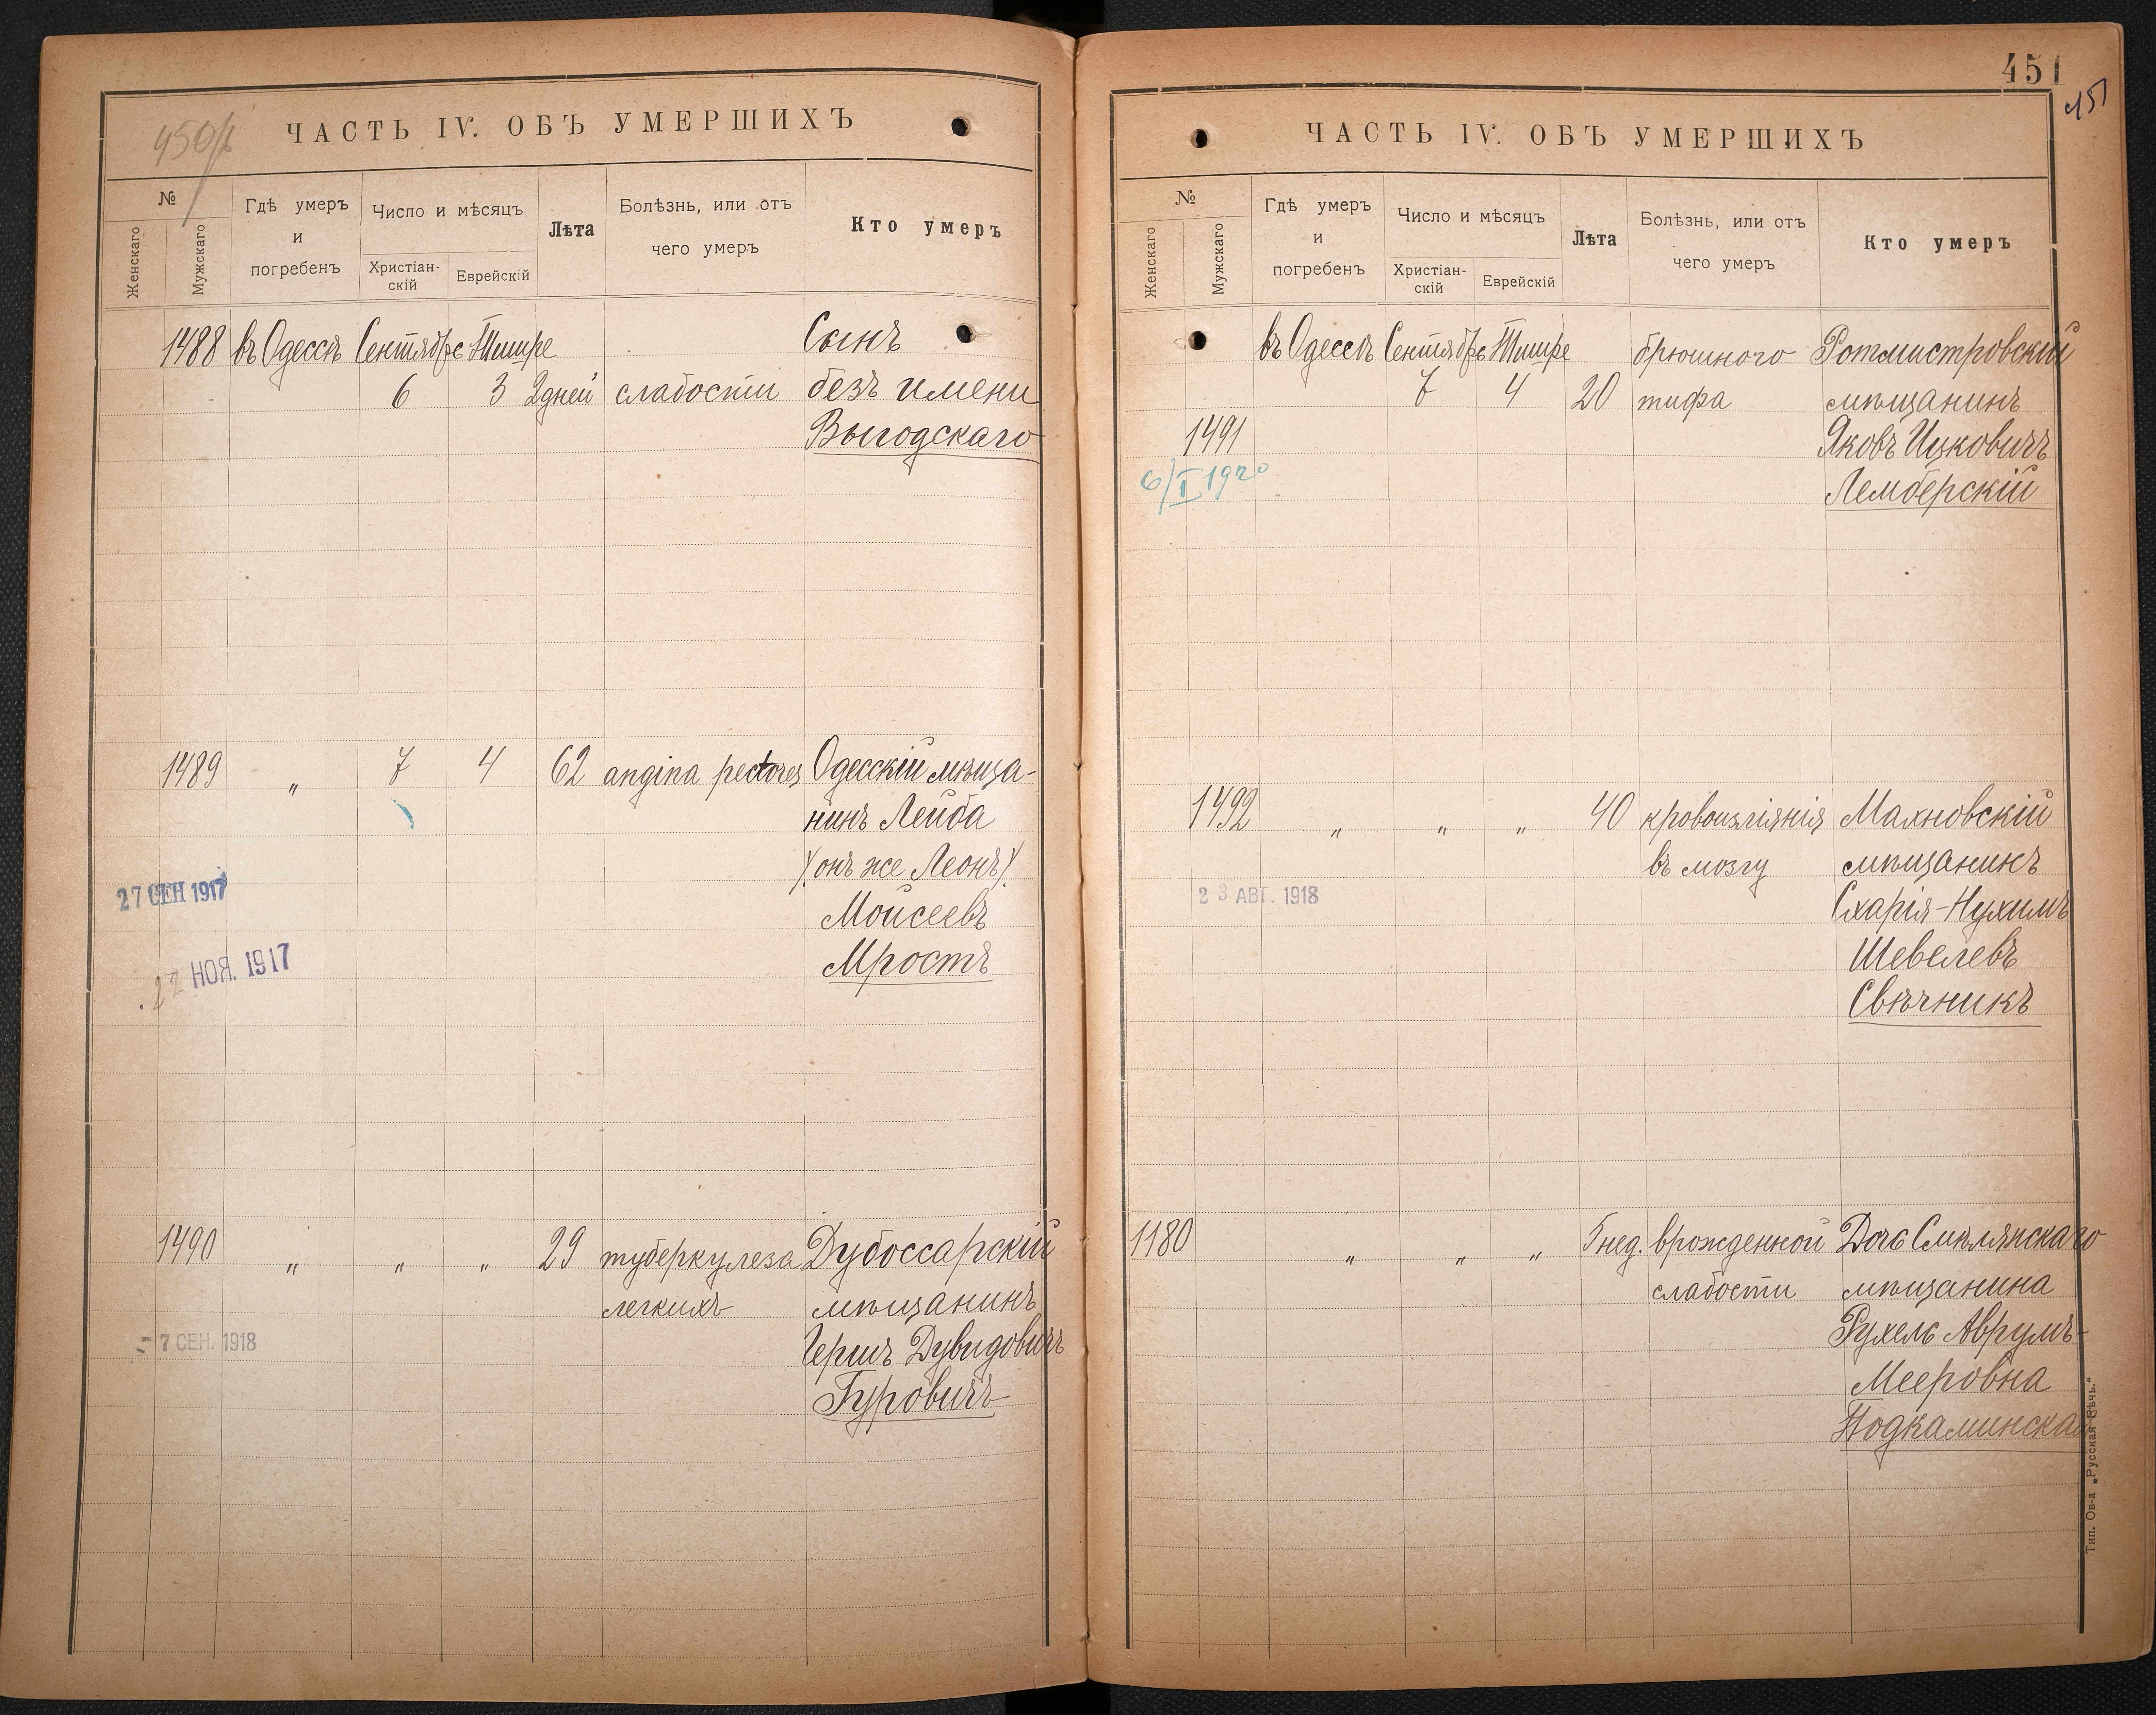 450/2
ЧАСТЬ IV. ОБЪ УМЕРШИХЪ
№
Женскаго
Мужскаго
Гдѣ умеръ
и
погребенъ
Число и мѣсяцъ
Христіан-
скій
Еврейскій
Лѣта
Болѣзнь, или отъ
чего умеръ
Кто умеръ
1488 въ Одессѣ Сентябрь Тишре Сынъ
6 3 2 дней слабости безъ имени
Выгодскаго
1489 " 7 4 62 angina pectores Одесскій мѣща-
нинъ Лейба
/онъ же Леонъ/
27 СЕН 1917
Моисеевъ
Мростъ
22 НОЯ. 1917
1490 " " " 29 туберкулеза Дубоссарскій
легкихъ мѣщанинъ
- 7 СЕН. 1918
Гершъ Дувидовичъ
Гуровичъ
451
451
ЧАСТЬ IV. ОБЪ УМЕРШИХЪ
№
Женскаго
Мужскаго
Гдѣ умеръ
и
погребенъ
Число и мѣсяцъ
Христіан-
скій
Еврейскій
Лѣта
Болѣзнь, или отъ
чего умеръ
Кто умеръ
въ Одессѣ Сентябрь Тишре брюшного Ротмистровскій
7 4 20 тифа мѣщанинъ
1491 Яковъ Ицковичъ
6/I 1920
Лемберскій
1492 " " " 40 кровоизліянія Махновскій
въ мозгу мѣщанинъ
23 АВГ. 1918
Схарія-Нухимъ
Шевелевъ
Свѣчникъ
1180 " " " 5 нед. врожденной Дочь Смѣлянскаго
слабости мѣщанина
Рухель Аврумъ-
Мееровна
Подкаминская
Тип. Ов-а „Русская Рѣчь.“